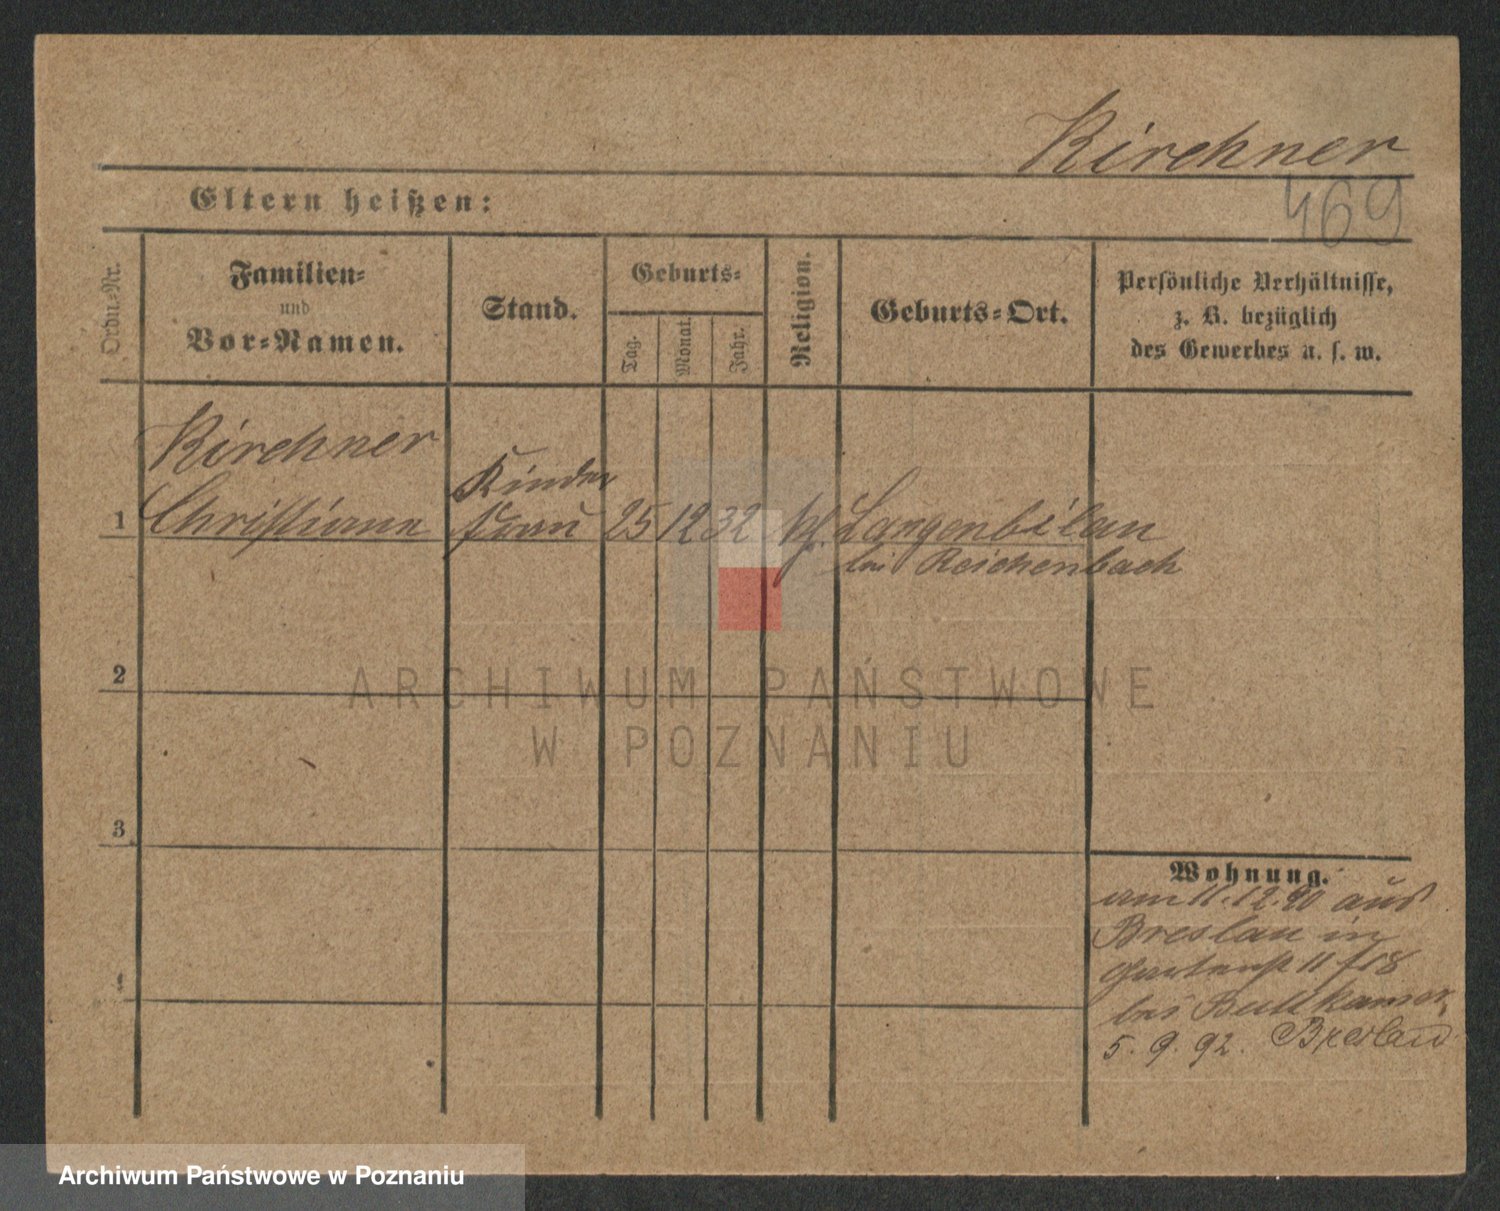 Kirchner
469
Eltern heißen:
Ordn.-Nr.
Familien-
und
Vor-Namen.
Stand.
Geburts-
Tag.
Monat.
Jahr.
Religion.
Geburts-Ort.
Persönliche Verhältnisse,
z. B. bezüglich
des Gewerbes u. s. w.
Kirchner
Kinder
1 Christiane frau 25 12 32 Langenbilau
bei Reichenbach
2
ARCHIWUM PAŃSTWOWE
W POZNANIU
3
Wohnung.
am 11.12.90 aus
Breslau in
Gartenst 11
bei Buttkamer
5. 9. 92. Breslau
4
Archiwum Państwowe w Poznaniu